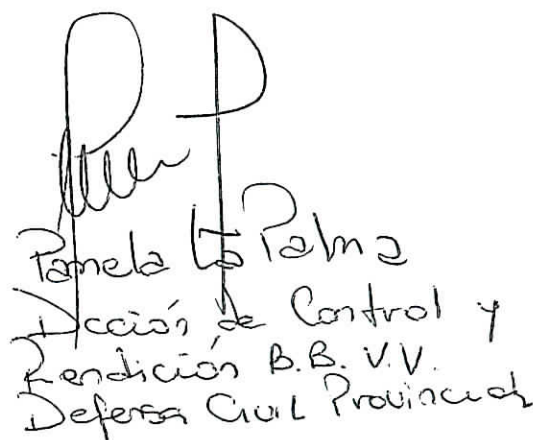 Pamela La Palma
Dcción de Control y
Rendición B.B. V.V.
Defensa Civil Provincial